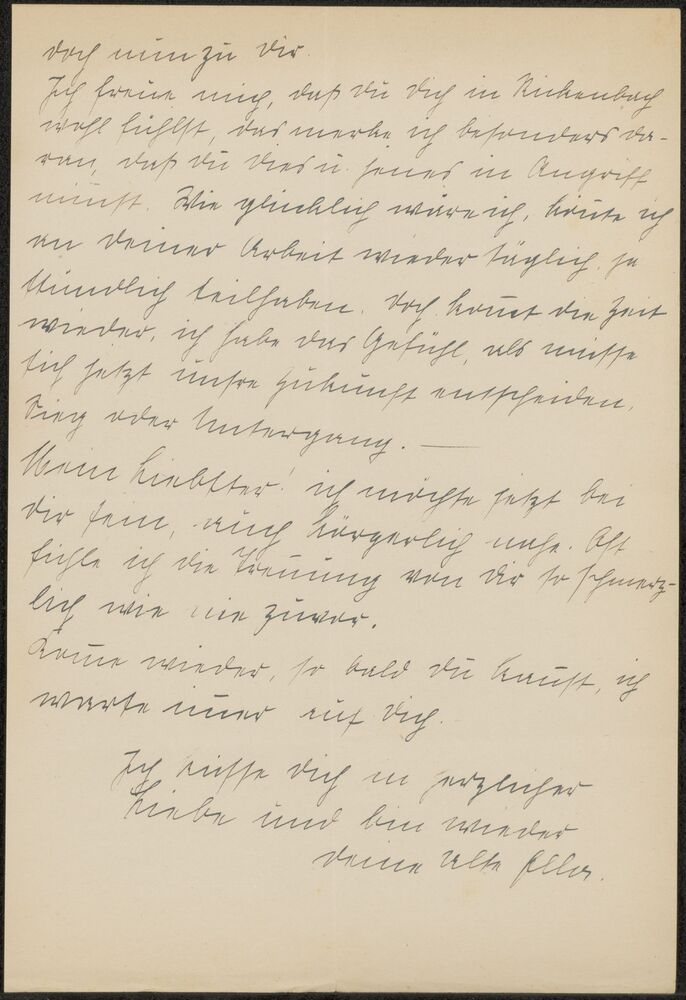 doch nun zu dir.
Ich freue mich, daß du dich in Rickenbach
wohl fühlst, das merke ich besonders da-
ran, daß du dies u. jenes in Angriff
nim̄st. Wie glücklich wäre ich, könnte ich
an deiner Arbeit wieder täglich, ja
stündlich teilhaben. Doch kom̄t die Zeit
wieder, ich habe das Gefühl, als müsse
sich jetzt unsre Zukunft entscheiden,
Sieg oder Untergang. —
Mein Liebster! ich möchte jetzt bei
dir sein, auch körperlich nahe. Oft
fühle ich die Trennung von dir so schmerz-
lich wie nie zuvor.
Kom̄e wieder, so bald du kan̄st, ich
warte im̄er auf dich.
Ich küsse dich in herzlicher
Liebe und bin wieder
deine alte Ella.